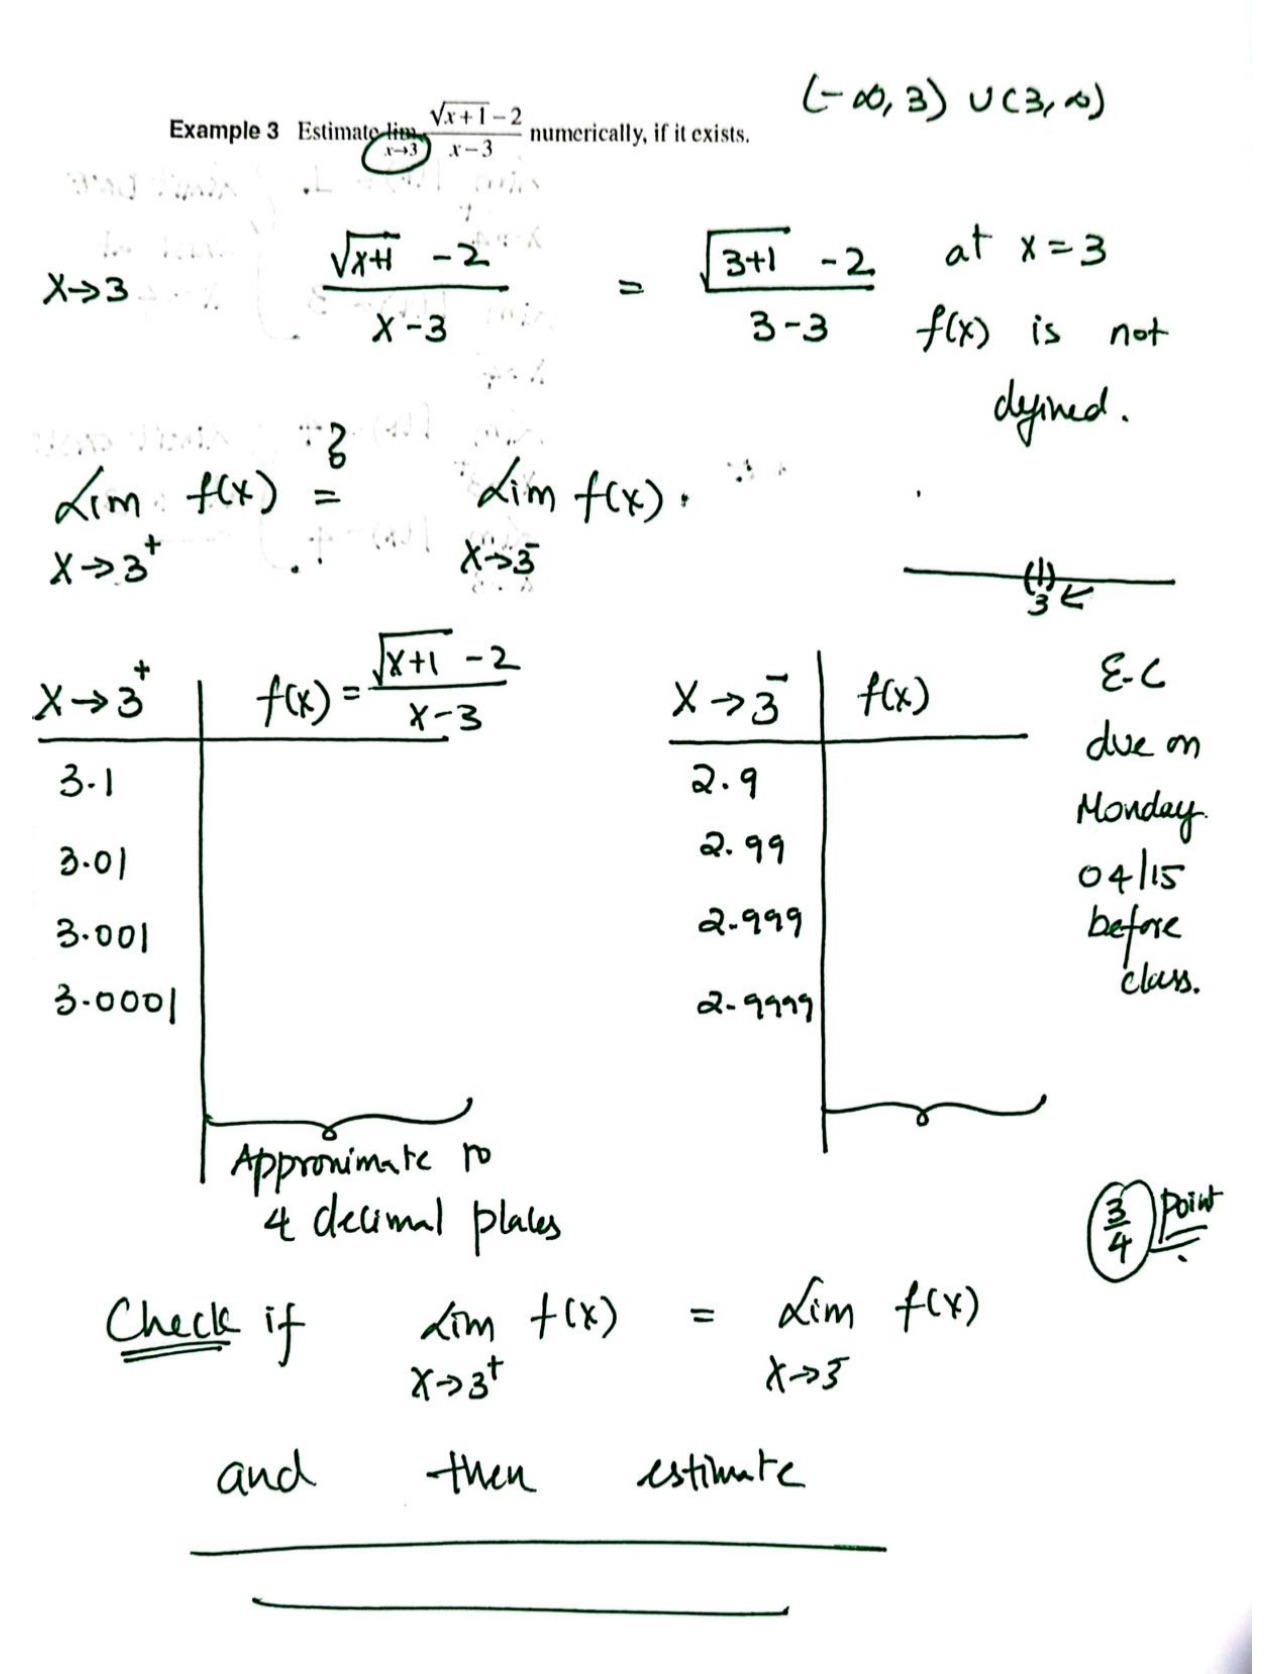 (-∞, 3) ∪ (3, ∞)
Example 3 Estimate lim x→3 (√x+1 - 2)/(x-3) numerically, if it exists.
x→3 (√x+1 - 2)/(x-3) = (√3+1 - 2)/(3-3) at x=3
f(x) is not
defined.
?
Lim f(x) = Lim f(x).
x→3⁺ x→3⁻
3
x→3⁺ f(x) = (√x+1 - 2)/(x-3)
3.1
3.01
3.001
3.0001
Approximate to
4 decimal places
x→3⁻ f(x)
2.9
2.99
2.999
2.9999
E.C
due on
Monday
04/15
before
class.
3/4 Point
Check if Lim f(x) = Lim f(x)
x→3⁺ x→3⁻
and then estimate